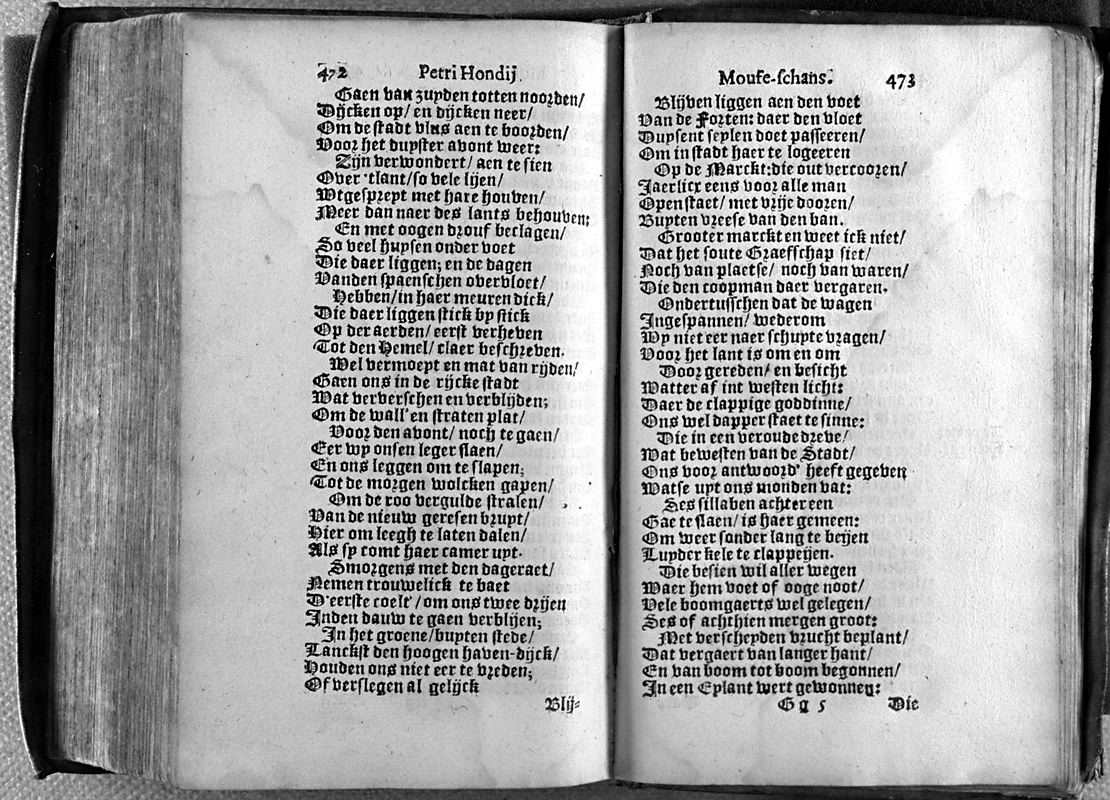 472 Petri Hondij
Gaen van zuyden totten noorden/
Dijcken op/ en dijcken neer/
Om de stadt vlus aen te boorden/
Voor het duyster avont weer:
Zijn verwondert/ aen te sien
Over 'tlant/so vele lijen/
Wtgespreyt met hare houven/
Meer dan naer des lants behouven:
En met oogen drouf beclagen/
So veel huysen onder voet
Die daer liggen; en de dagen
Vanden spaenschen overvloet/
Hebben/in haer meuren dick/
Die daer liggen stick by stick
Op der aerden/ eerst verheven
Tot den Hemel/ claer beschreven.
Wel vermoeyt en mat van rijden/
Gaen ons in de rijcke stadt
Wat ververschen en verblijden;
Om de wall' en straten plat/
Voor den avont/ noch te gaen/
Eer wy onsen leger slaen/
En ons leggen om te slapen;
Tot de morgen wolcken gapen/
Om de roo vergulde stralen/
Van de nieuw geresen bruyt/
Hier om leegh te laten dalen/
Als sy comt haer camer uyt.
Smorgens met den dageraet/
Nemen trouwelick te baet
D'eerste coelt'/om ons twee drijen
Inden dauw te gaen verblijen;
In het groene/buyten stede/
Lanckst den hoogen haven-dijck/
Houden ons niet eer te vreden;
Of verslegen al gelijck
Blij-
Moufe-schans. 473
Blijven liggen aen den voet
Van de Forten: daer den vloet
Duysent seylen doet passeeren/
Om in stadt haer te logeeren
Op de Marckt:die out vercooren/
Jaerlicx eens voor alle man
Open staet/ met vrije dooren/
Buyten vreese van den ban.
Grooter marckt en weet ick niet/
Dat het soute Graefschap siet/
Noch van plaetse/ noch van waren/
Die den coopman daer vergaren.
Ondertusschen dat de wagen
Ingespannen/ wederom
Wy niet eer naer schuyte vragen/
Voor het lant is om en om
Door gereden/ en besicht
Watter af int westen licht:
Daer de clappige goddinne/
Ons wel dapper staet te sinne:
Die in een veroude dreve/
Wat bewesten van de Stadt/
Ons voor antwoord' heeft gegeven
Watse uyt ons monden vat:
Ses sillaben achter een
Gae te slaen/ is haer gemeen:
Om weer sonder lang te beijen
Luyder kele te clappeijen.
Die besien wil aller wegen
Waer hem voet of ooge noot/
Vele boomgaerts wel gelegen/
Ses of achthien mergen groot:
Met verscheyden vrucht beplant/
Dat vergaert van langer hant/
En van boom tot boom begonnen/
In een Eylant wert gewonnen:
G g 5 Die